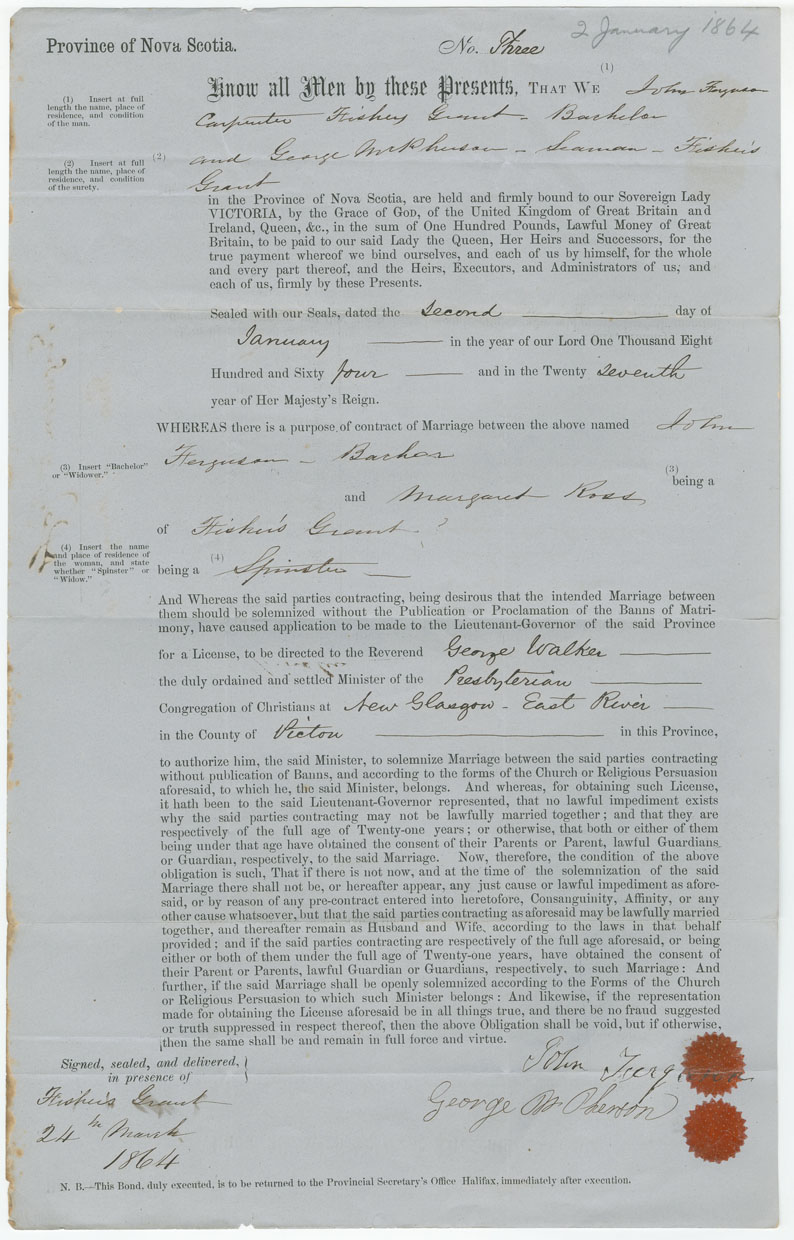 2 January 1864
Province of Nova Scotia.
No. Three
Know all Men by these Presents, THAT WE (1) John Ferguson
(1) Insert at full length the name, place of residence, and condition of the man.
Carpenter Fishers Grant - Bachelor
(2) Insert at full length the name, place of residence, and condition of the surety.
(2) and George McKherson - Seaman - Fisher's
Grant
in the Province of Nova Scotia, are held and firmly bound to our Sovereign Lady
VICTORIA, by the Grace of GOD, of the United Kingdom of Great Britain and
Ireland, Queen, &c., in the sum of One Hundred Pounds, Lawful Money of Great
Britain, to be paid to our said Lady the Queen, Her Heirs and Successors, for the
true payment whereof we bind ourselves, and each of us by himself, for the whole
and every part thereof, and the Heirs, Executors, and Administrators of us, and
each of us, firmly by these Presents.
Sealed with our Seals, dated the second day of
January in the year of our Lord One Thousand Eight
Hundred and Sixty four and in the Twenty seventh
year of Her Majesty's Reign.
WHEREAS there is a purpose of contract of Marriage between the above named John
Ferguson - Bachor
(3) Insert "Bachelor" or "Widower."
(3) being a
and Margaret Ross
of Fisher's Grant ?
(4) Insert the name and place of residence of the woman, and state whether "Spinster" or "Widow."
being a (4) Spinster
And Whereas the said parties contracting, being desirous that the intended Marriage between
them should be solemnized without the Publication or Proclamation of the Banns of Matri-
mony, have caused application to be made to the Lieutenant-Governor of the said Province
for a License, to be directed to the Reverend George Walker
the duly ordained and settled Minister of the Presbyterian
Congregation of Christians at New Glasgow - East River
in the County of Pictou in this Province,
to authorize him, the said Minister, to solemnize Marriage between the said parties contracting
without publication of Banns, and according to the forms of the Church or Religious Persuasion
aforesaid, to which he, the said Minister, belongs. And whereas, for obtaining such License,
it hath been to the said Lieutenant-Governor represented, that no lawful impediment exists
why the said parties contracting may not be lawfully married together; and that they are
respectively of the full age of Twenty-one years; or otherwise, that both or either of them
being under that age have obtained the consent of their Parents or Parent, lawful Guardians
or Guardian, respectively, to the said Marriage. Now, therefore, the condition of the above
obligation is such, That if there is not now, and at the time of the solemnization of the said
Marriage there shall not be, or hereafter appear, any just cause or lawful impediment as afore-
said, or by reason of any pre-contract entered into heretofore, Consanguinity, Affinity, or any
other cause whatsoever, but that the said parties contracting as aforesaid may be lawfully married
together, and thereafter remain as Husband and Wife, according to the laws in that behalf
provided; and if the said parties contracting are respectively of the full age aforesaid, or being
either or both of them under the full age of Twenty-one years, have obtained the consent of
their Parent or Parents, lawful Guardian or Guardians, respectively, to such Marriage: And
further, if the said Marriage shall be openly solemnized according to the Forms of the Church
or Religious Persuasion to which such Minister belongs: And likewise, if the representation
made for obtaining the License aforesaid be in all things true, and there be no fraud suggested
or truth suppressed in respect thereof, then the above Obligation shall be void, but if otherwise,
then the same shall be and remain in full force and virtue.
Signed, sealed, and delivered,
in presence of
John Fergusson
Fisher's Grant
George McPherson
24th March
1864
N. B.—This Bond, duly executed, is to be returned to the Provincial Secretary's Office Halifax, immediately after execution.